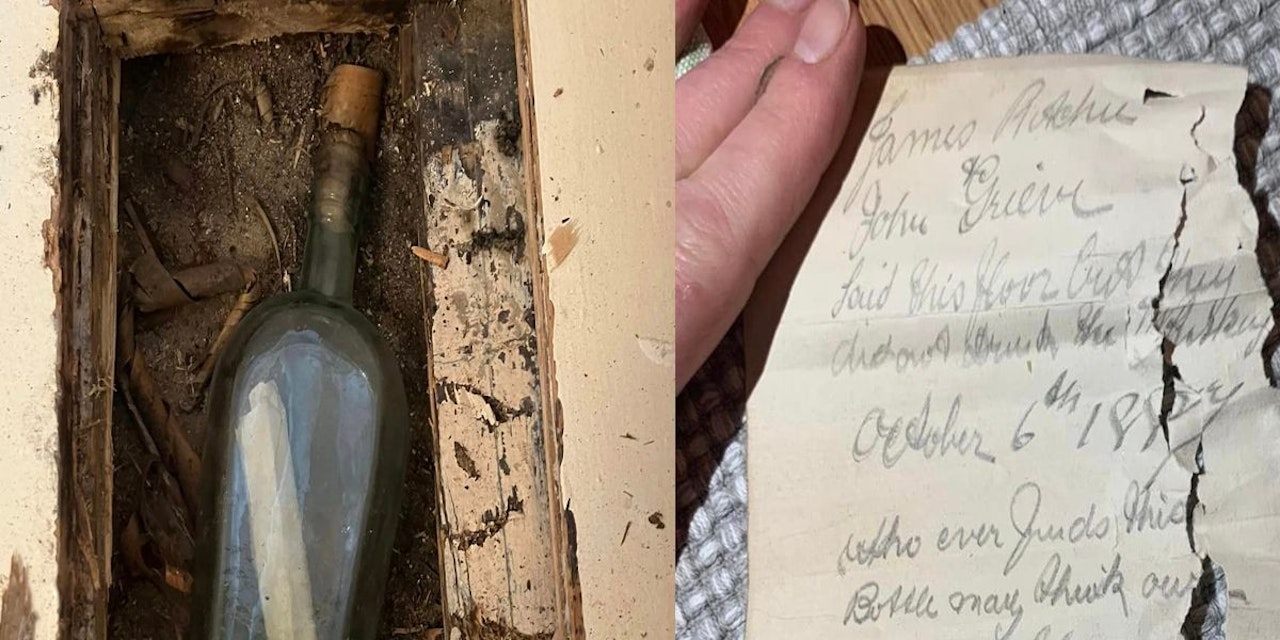 James Ritchie
&
John Grieve
laid this floor but they
did not drink the Whisky
October 6th 1887
who ever finds this
Bottle may think our